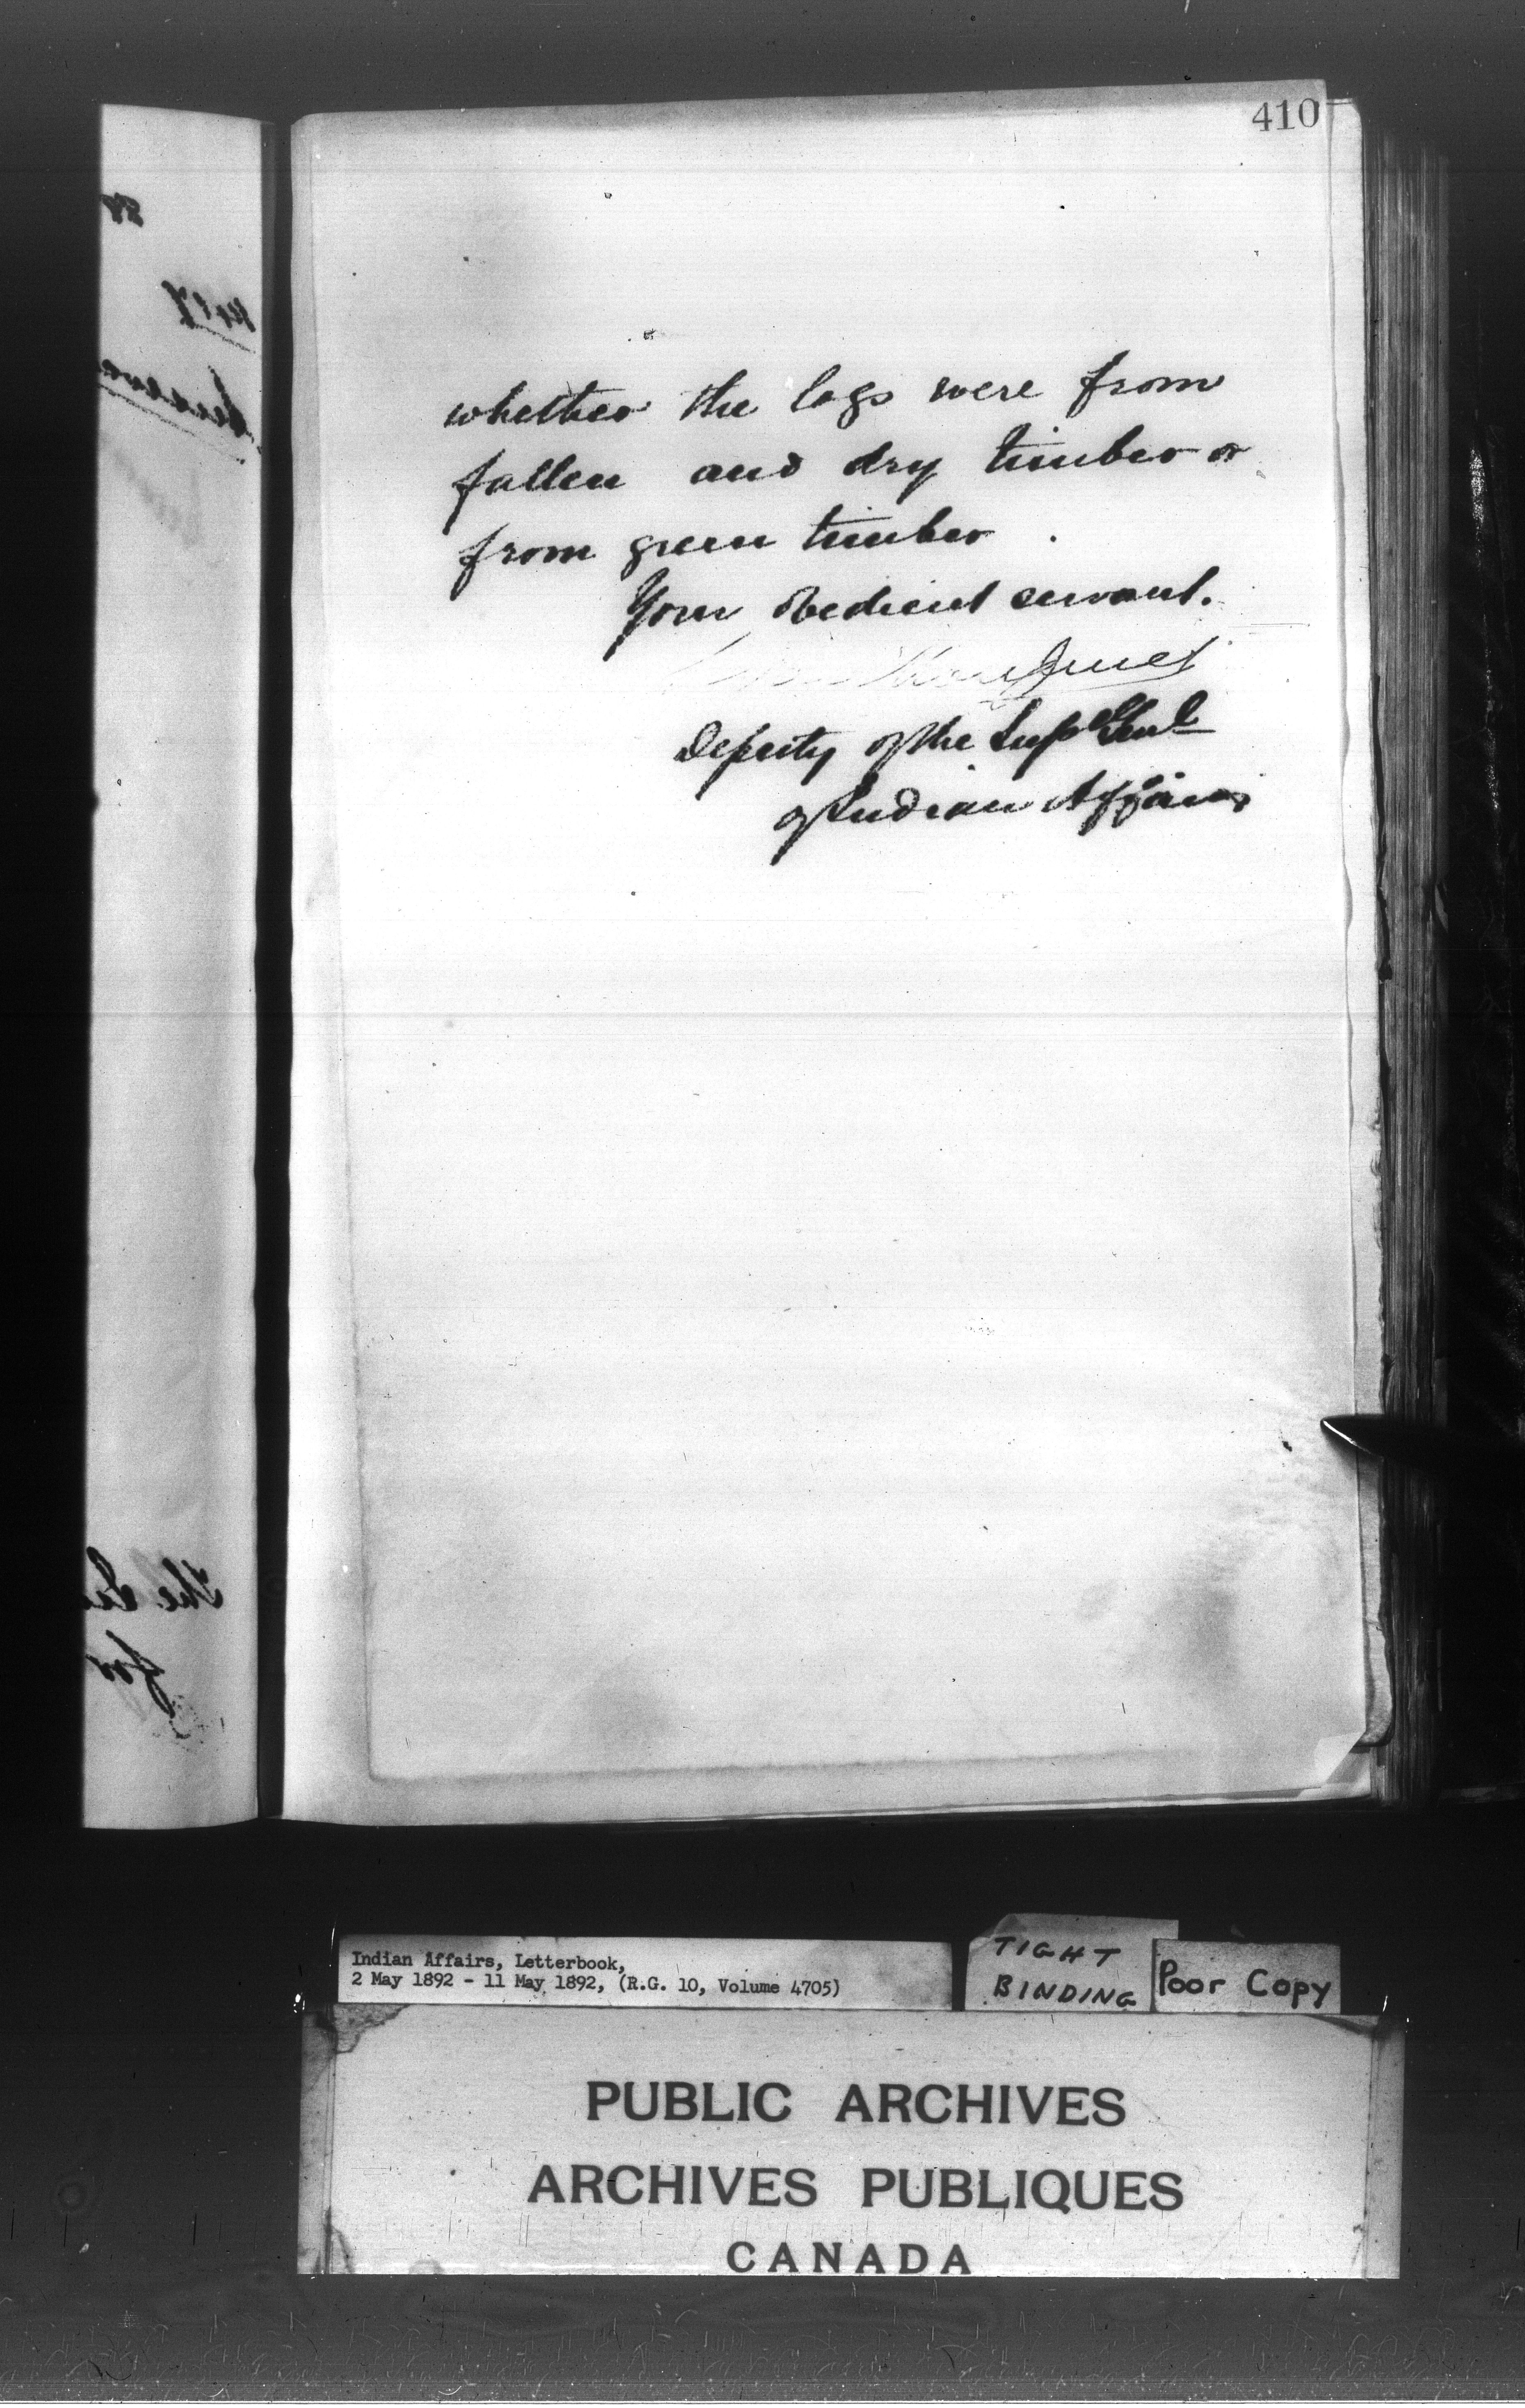 410
whether the logs were from
fallen and dry timber or
from green timber.
Your obedient servant.
Deputy of the Supt Genl
of Indian Affairs
Indian Affairs, Letterbook,
2 May 1892 - 11 May 1892, (R.G. 10, Volume 4705)
TIGHT
BINDING
Poor Copy
PUBLIC ARCHIVES
ARCHIVES PUBLIQUES
CANADA